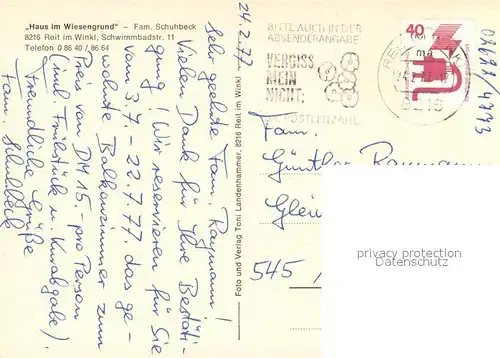 „Haus im Wiesengrund“ – Fam. Schuhbeck
8216 Reit im Winkl, Schwimmbadstr. 11
Telefon 0 86 40 / 86 64
24.2.77
Sehr geehrte Fam. Raymann!
Vielen Dank für Ihre Bestäti-
gung! Wir reservieren für Sie
vom 3.7. – 22.7.77. das ge-
wohnte Balkonzimmer zum
Preis von DM 15.- pro Person
(incl. Frühstück u. Kurabgabe).
Freundliche Grüße
Fam. Schuhbeck
Foto und Verlag Toni Landenhammer, 8216 Reit im Winkl
BITTE AUCH IN DER
ABSENDERANGABE
VERGISS
MEIN
NICHT:
DIE POSTLEITZAHL
40
8216
Fam.
Günther
545 /
privacy protection
ansichtskartenversand.com